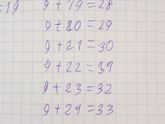 =19 9+19=28
9+20=29
9+21=30
9+22=31
9+23=32
9+24=33